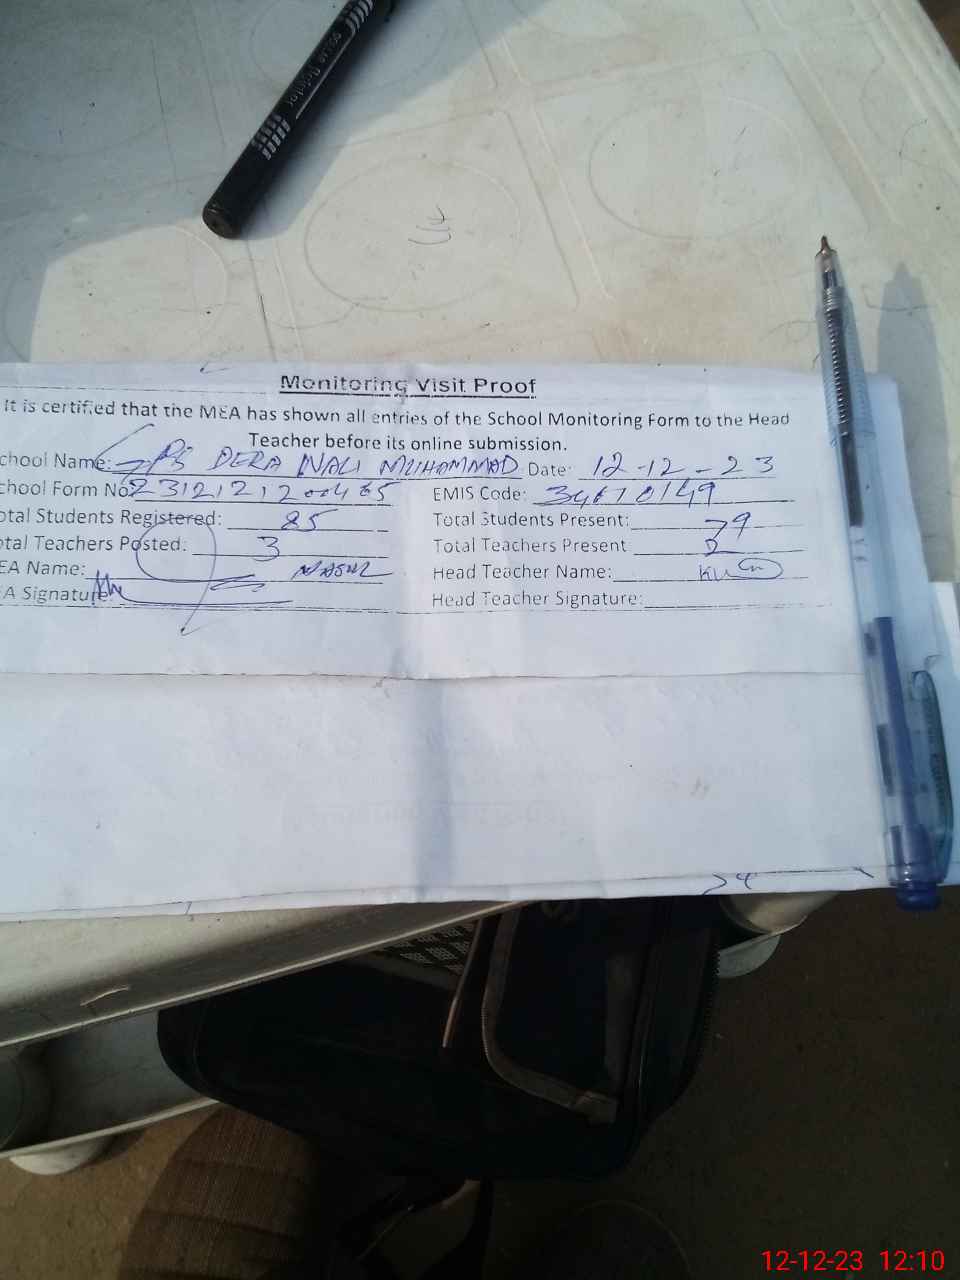 Monitoring Visit Proof
It is certified that the MEA has shown all entries of the School Monitoring Form to the Head
Teacher before its online submission.
chool Name: GPS DERA WALI MUHAMMAD Date: 12-12-23
chool Form No. EMIS Code:
otal Students Registered: 85 Total Students Present: 79
otal Teachers Posted: 3 Total Teachers Present 2
EA Name: Head Teacher Name:
A Signature Head Teacher Signature:
12-12-23 12:10